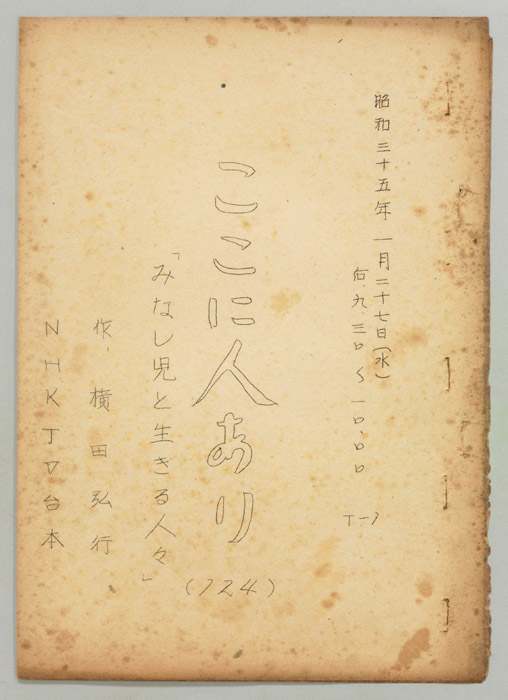 昭和三十五年一月二十七日(水)
后九.三〇〜一〇.〇〇
T-1
ここに人あり
(124)
「みなし児と生きる人々」
作、横田弘行
NHKTV台本